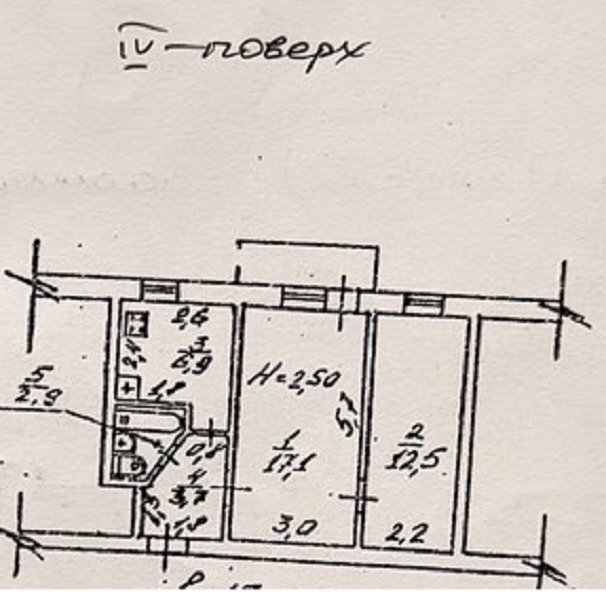 IV — поверх
2,6
3
6,9
2,4
1,8
H=2,50
5
2,9
5,7
0,8
1
17,1
2
12,5
4
3,7
1,8
3,0
2,2